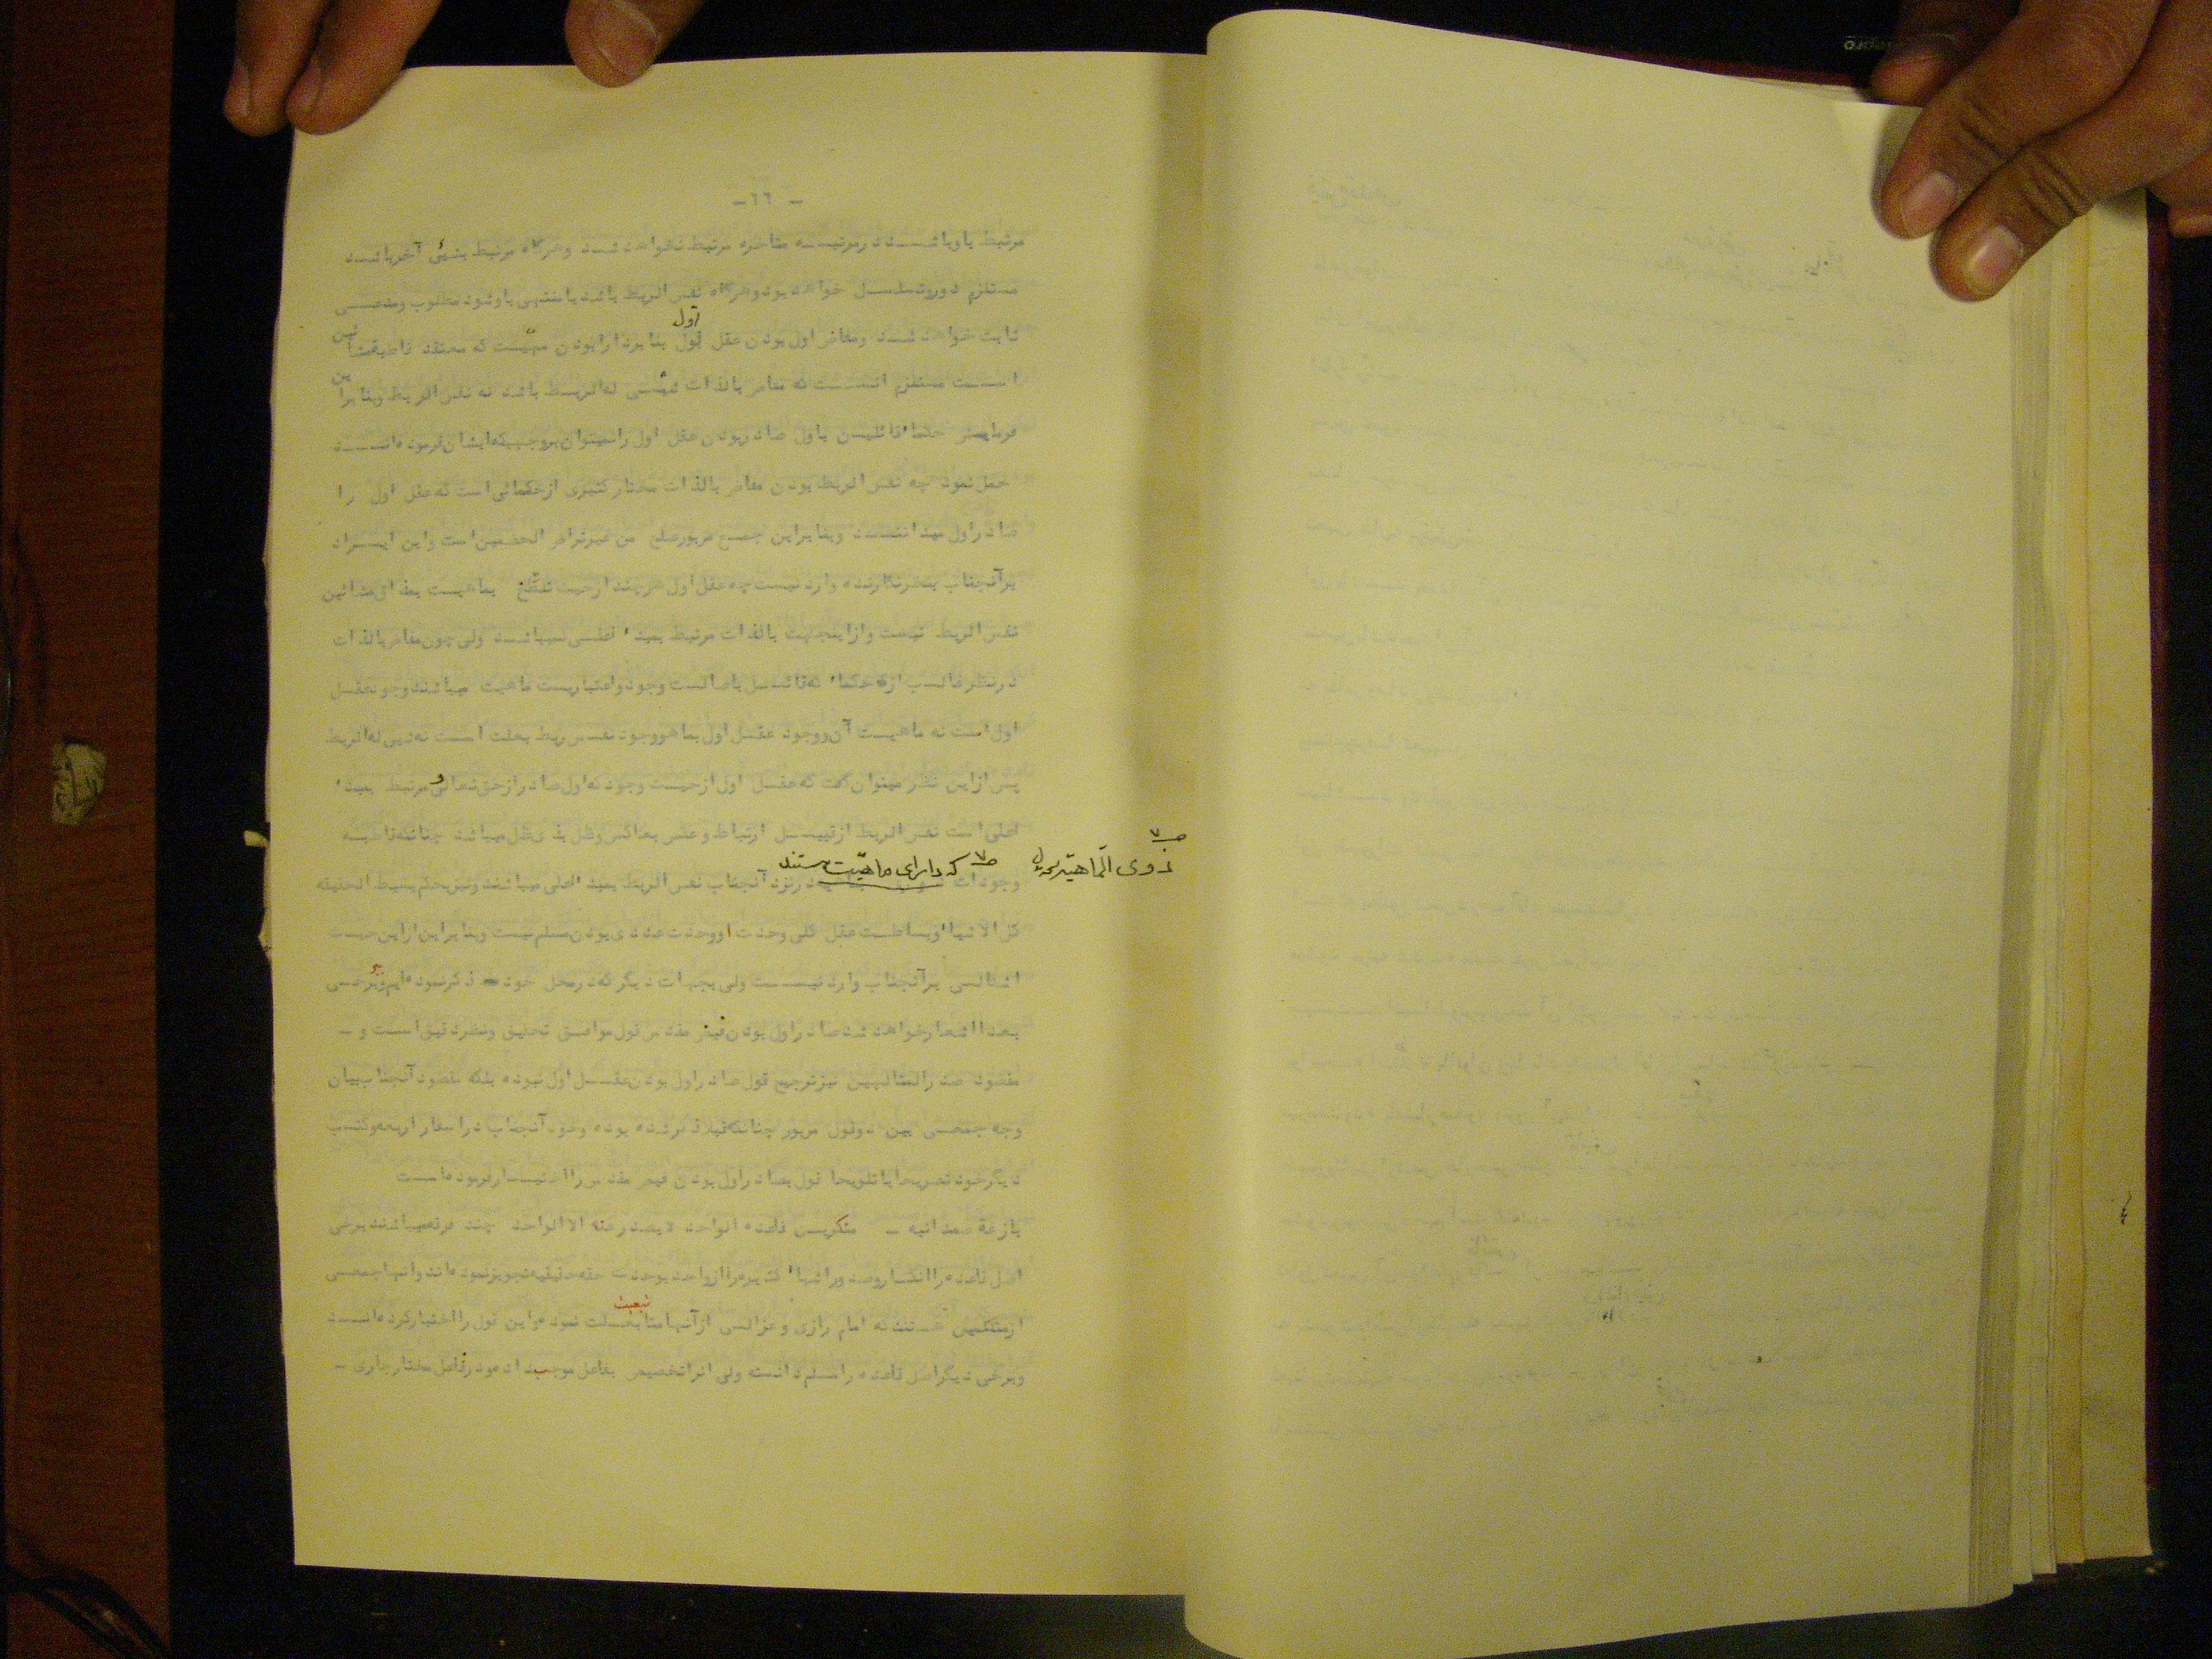 - ٦٦ -
مرتبط باو باشد در مرتبه متاخره مرتبط نخواهد شد و هرگاه مرتبط بشیئی آخر باشد
مستلزم دور و تسلسل خواهد بود و هرگاه نفس الربط باشد یا منتهی باو شود مطلوب و مدعی
ثابت خواهد شد و مفاض اول بودن عقل اول بنا بر دارا بودن مهیّت که معتقد قاطبه مشائین
است مستلزم انست که مفاض بالذات شیئی له الربط باشد نه نفس الربط و بنابراین
فرمایش حکماء قائلین باول صادر بودن عقل اول را نمیتوان بروجهیکه ایشان فرموده‌اند
حمل نمود چه نفس الربط بودن مفاض بالذات مختار کثیری از حکمائی است که عقل اول را
صادر اول میدانند و بنابراین جمع مزبور صلح من غیر تراض الخصمین است و این ایراد
بر آنجناب بنظر نگارنده وارد نیست چه عقل اول هر چند از حیث بماهیت بمذاق مشائین
نفس الربط نیست و از اینجهت بالذات مرتبط بمبدء اعلی نمیباشد ولی چون مفاض بالذات
در نظر غالب از حکماء که قائل باصالت وجود و اعتباریت ماهیت میباشند وجود عقل
اول است نه ماهیت آن و وجود عقل اول بما هو وجود نفس ربط بعلت است نه شیئی له الربط
پس از این نظر میتوان گفت که عقل اول از حیث وجود که اول صادر از حق تعالی و مرتبط بمبدء
اعلی است نفس الربط از قبیل ارتباط و عکس بعاکس و ظل بذی ظل میباشد چنانکه قاطبه
وجودات که دارای ماهیّت هستند در نزد آنجناب نفس الربط بمبدء اعلی میباشند و نیز بحکم بسیط الحقیقه
ذوی الماهیّة
کل الاشیاء و بساطت عقل کلی وحدت او وحدت عددی بودن مسلم نیست و بنابراین از این حیث
اشکالی بر آنجناب وارد نیست ولی بجهات دیگر که در محل خود ذکر نموده‌ایم و بر حسی
بعدا اشعار خواهد شد صادر اول بودن فیض مقدس قول موافق تحقیق و نظر دقیق است و -
مقصود صدرالمتالهین نیز ترجیح قول صادر اول بودن عقل اول نبوده بلکه مقصود آنجناب بیان
وجه جمعی بین دو قول مزبور چنانکه قبلا ذکر شده بوده و خود آنجناب در اسفار اربعه و کتب
دیگر خود تصریحا یا تلویحا قول بصادر اول بودن فیض مقدس را اختیار فرموده است
بازغة صمدانیه - منکرین قاعده الواحد لا یصدر عنه الا الواحد چند فرقه میباشند برخی
اصل قاعده را انکار و صدور اشیاء کثیره را از واحد بوحدت حقه حقیقیه تجویز نموده‌اند و آنها جمعی
از متکلمین هستند که امام رازی و غزالی از آنها تبعیت نموده و این قول را اختیار کرده‌اند
و برخی دیگر اصل قاعده را مسلم دانسته ولی انرا تخصیص بفاعل موجب داده و در فاعل مختار جاری -